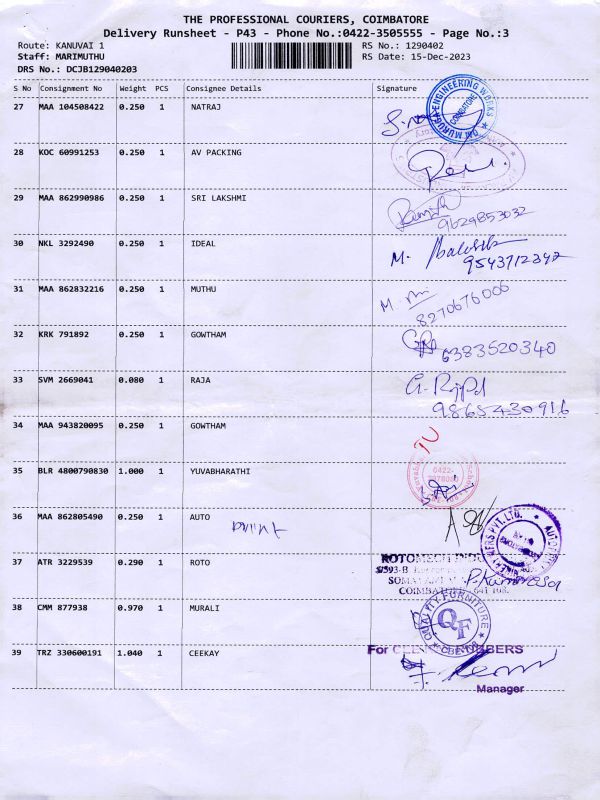 THE PROFESSIONAL COURIERS, COIMBATORE
Delivery Runsheet - P43 - Phone No.:0422-3505555 - Page No.:3
Route: KANUVAI 1 RS No.: 1290402
Staff: MARIMUTHU RS Date: 15-Dec-2023
DRS No.: DCJB129040203
S No Consignment No Weight PCS Consignee Details Signature
27 MAA 104508422 0.250 1 NATRAJ
28 KOC 60991253 0.250 1 AV PACKING
29 MAA 862990986 0.250 1 SRI LAKSHMI
9629853032
30 NKL 3292490 0.250 1 IDEAL M.
9543712342
31 MAA 862832216 0.250 1 MUTHU M.
8270676006
32 KRK 791892 0.250 1 GOWTHAM
6383520340
33 SVM 2669041 0.080 1 RAJA
9865430916
34 MAA 943820095 0.250 1 GOWTHAM
35 BLR 4800790830 1.000 1 YUVABHARATHI
0422-
36 MAA 862805490 0.250 1 AUTO
37 ATR 3229539 0.290 1 ROTO
ROTOMECH
COIMBATORE
38 CMM 877938 0.970 1 MURALI
QUALITY FURNITURE
QF
39 TRZ 330600191 1.040 1 CEEKAY
For
Manager